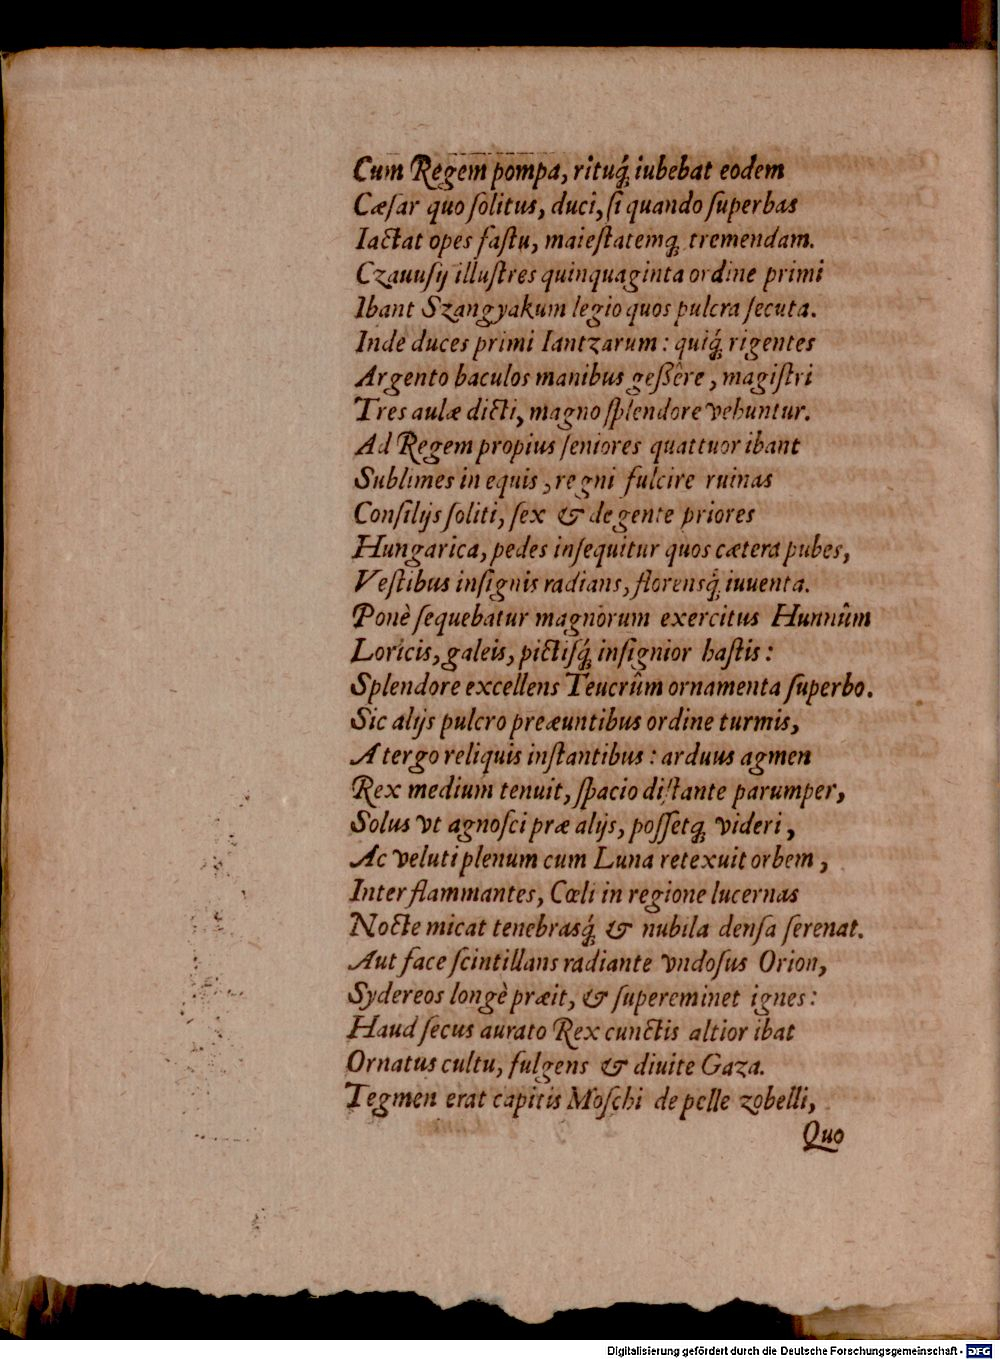 Cum Regem pompa, rituq́ꝫ iubebat eodem
Cæſar quo ſolitus, duci, ſi quando ſuperbas
Iactat opes faſtu, maieſtatemqꝫ tremendam.
Czauuſij illuſtres quinquaginta ordine primi
Ibant Szangyakum legio quos pulcra ſecuta.
Inde duces primi Iantzarum: quiq́ꝫ rigentes
Argento baculos manibus geßêre, magiſtri
Tres aulæ dicti, magno ſplendore vehuntur.
Ad Regem propius ſeniores quattuor ibant
Sublimes in equis, regni fulcire ruinas
Conſilijs ſoliti, ſex & de gente priores
Hungarica, pedes inſequitur quos cætera pubes,
Veſtibus inſignis radians, florensq́ꝫ iuuenta.
Ponè ſequebatur magnorum exercitus Hunnûm
Loricis, galeis, pictiſq́ꝫ inſignior haſtis:
Splendore excellens Teucrûm ornamenta ſuperbo.
Sic alijs pulcro preæuntibus ordine turmis,
A tergo reliquis inſtantibus: arduus agmen
Rex medium tenuit, ſpacio diſtante parumper,
Solus vt agnoſci præ alijs, poſſetqꝫ videri,
Ac veluti plenum cum Luna retexuit orbem,
Inter flammantes, Cœli in regione lucernas
Nocte micat tenebrasq́ꝫ & nubila denſa ſerenat.
Aut face ſcintillans radiante vndoſus Orion,
Sydereos longè præit, & ſupereminet ignes:
Haud ſecus aurato Rex cunctis altior ibat
Ornatus cultu, fulgens & diuite Gaza.
Tegmen erat capitis Moſchi de pelle zobelli,
Quo
Digitalisierung gefördert durch die Deutsche Forschungsgemeinschaft - DFG